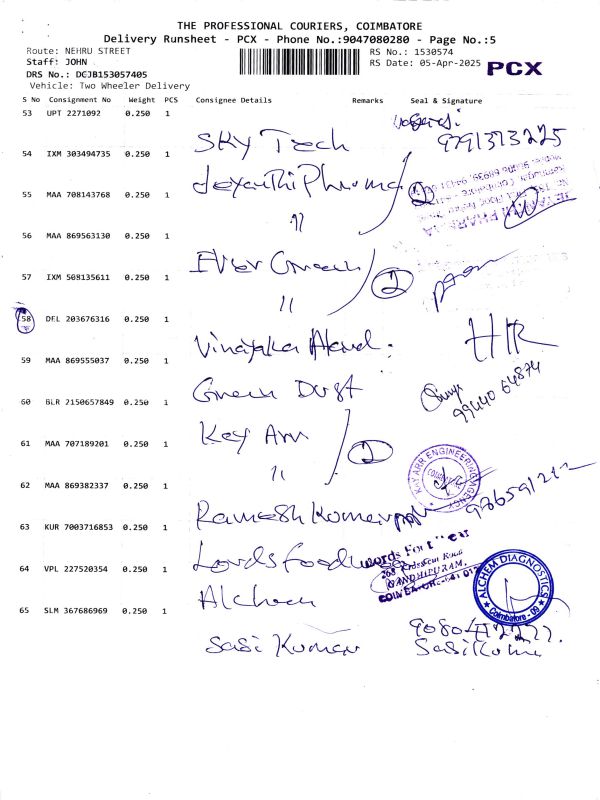 THE PROFESSIONAL COURIERS, COIMBATORE
Delivery Runsheet - PCX - Phone No.:9047080280 - Page No.:5
Route: NEHRU STREET
RS No.: 1530574
Staff: JOHN
RS Date: 05-Apr-2025
PCX
DRS No.: DCJB153057405
Vehicle: Two Wheeler Delivery
S No Consignment No Weight PCS Consignee Details Remarks Seal & Signature
53 UPT 2271092 0.250 1
SKY Tech 9791373225
54 IXM 303494735 0.250 1
Pharma 2
55 MAA 708143768 0.250 1
"
56 MAA 869563130 0.250 1
Ever Green 2
57 IXM 508135611 0.250 1
"
58 DEL 203676316 0.250 1
Vinayaka HR
59 MAA 869555037 0.250 1
Green Dust 99440 64874
60 BLR 2150657849 0.250 1
Key Arr 2
61 MAA 707189201 0.250 1
"
KAY ARR ENGINEERING AGENCY
62 MAA 869382337 0.250 1
Ramesh Kumar
63 KUR 7003716853 0.250 1
Lords
GANDHIPURAM,
64 VPL 227520354 0.250 1
Alchem
ALCHEM DIAGNOSTICS
Coimbatore - 09
65 SLM 367686969 0.250 1
Sasi Kumar